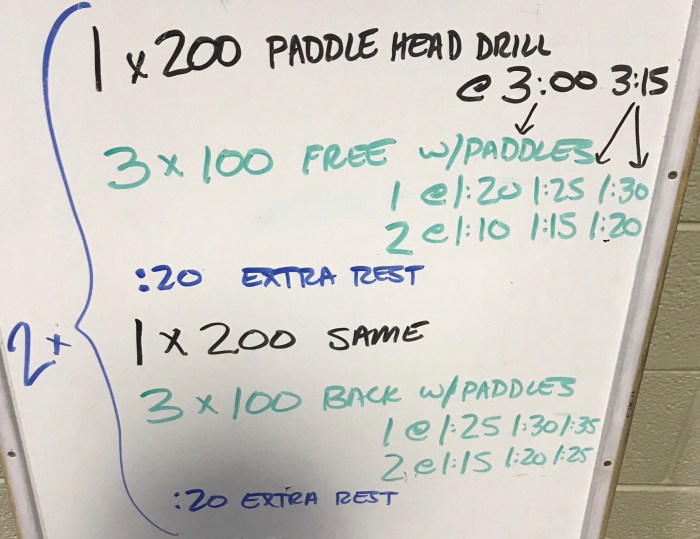 1 x 200 PADDLE HEAD DRILL
@ 3:00 3:15
3 x 100 FREE w/PADDLES
1 @ 1:20 1:25 1:30
2 @ 1:10 1:15 1:20
:20 EXTRA REST
2x
1 x 200 SAME
3 x 100 BACK w/PADDLES
1 @ 1:25 1:30 1:35
2 @ 1:15 1:20 1:25
:20 EXTRA REST